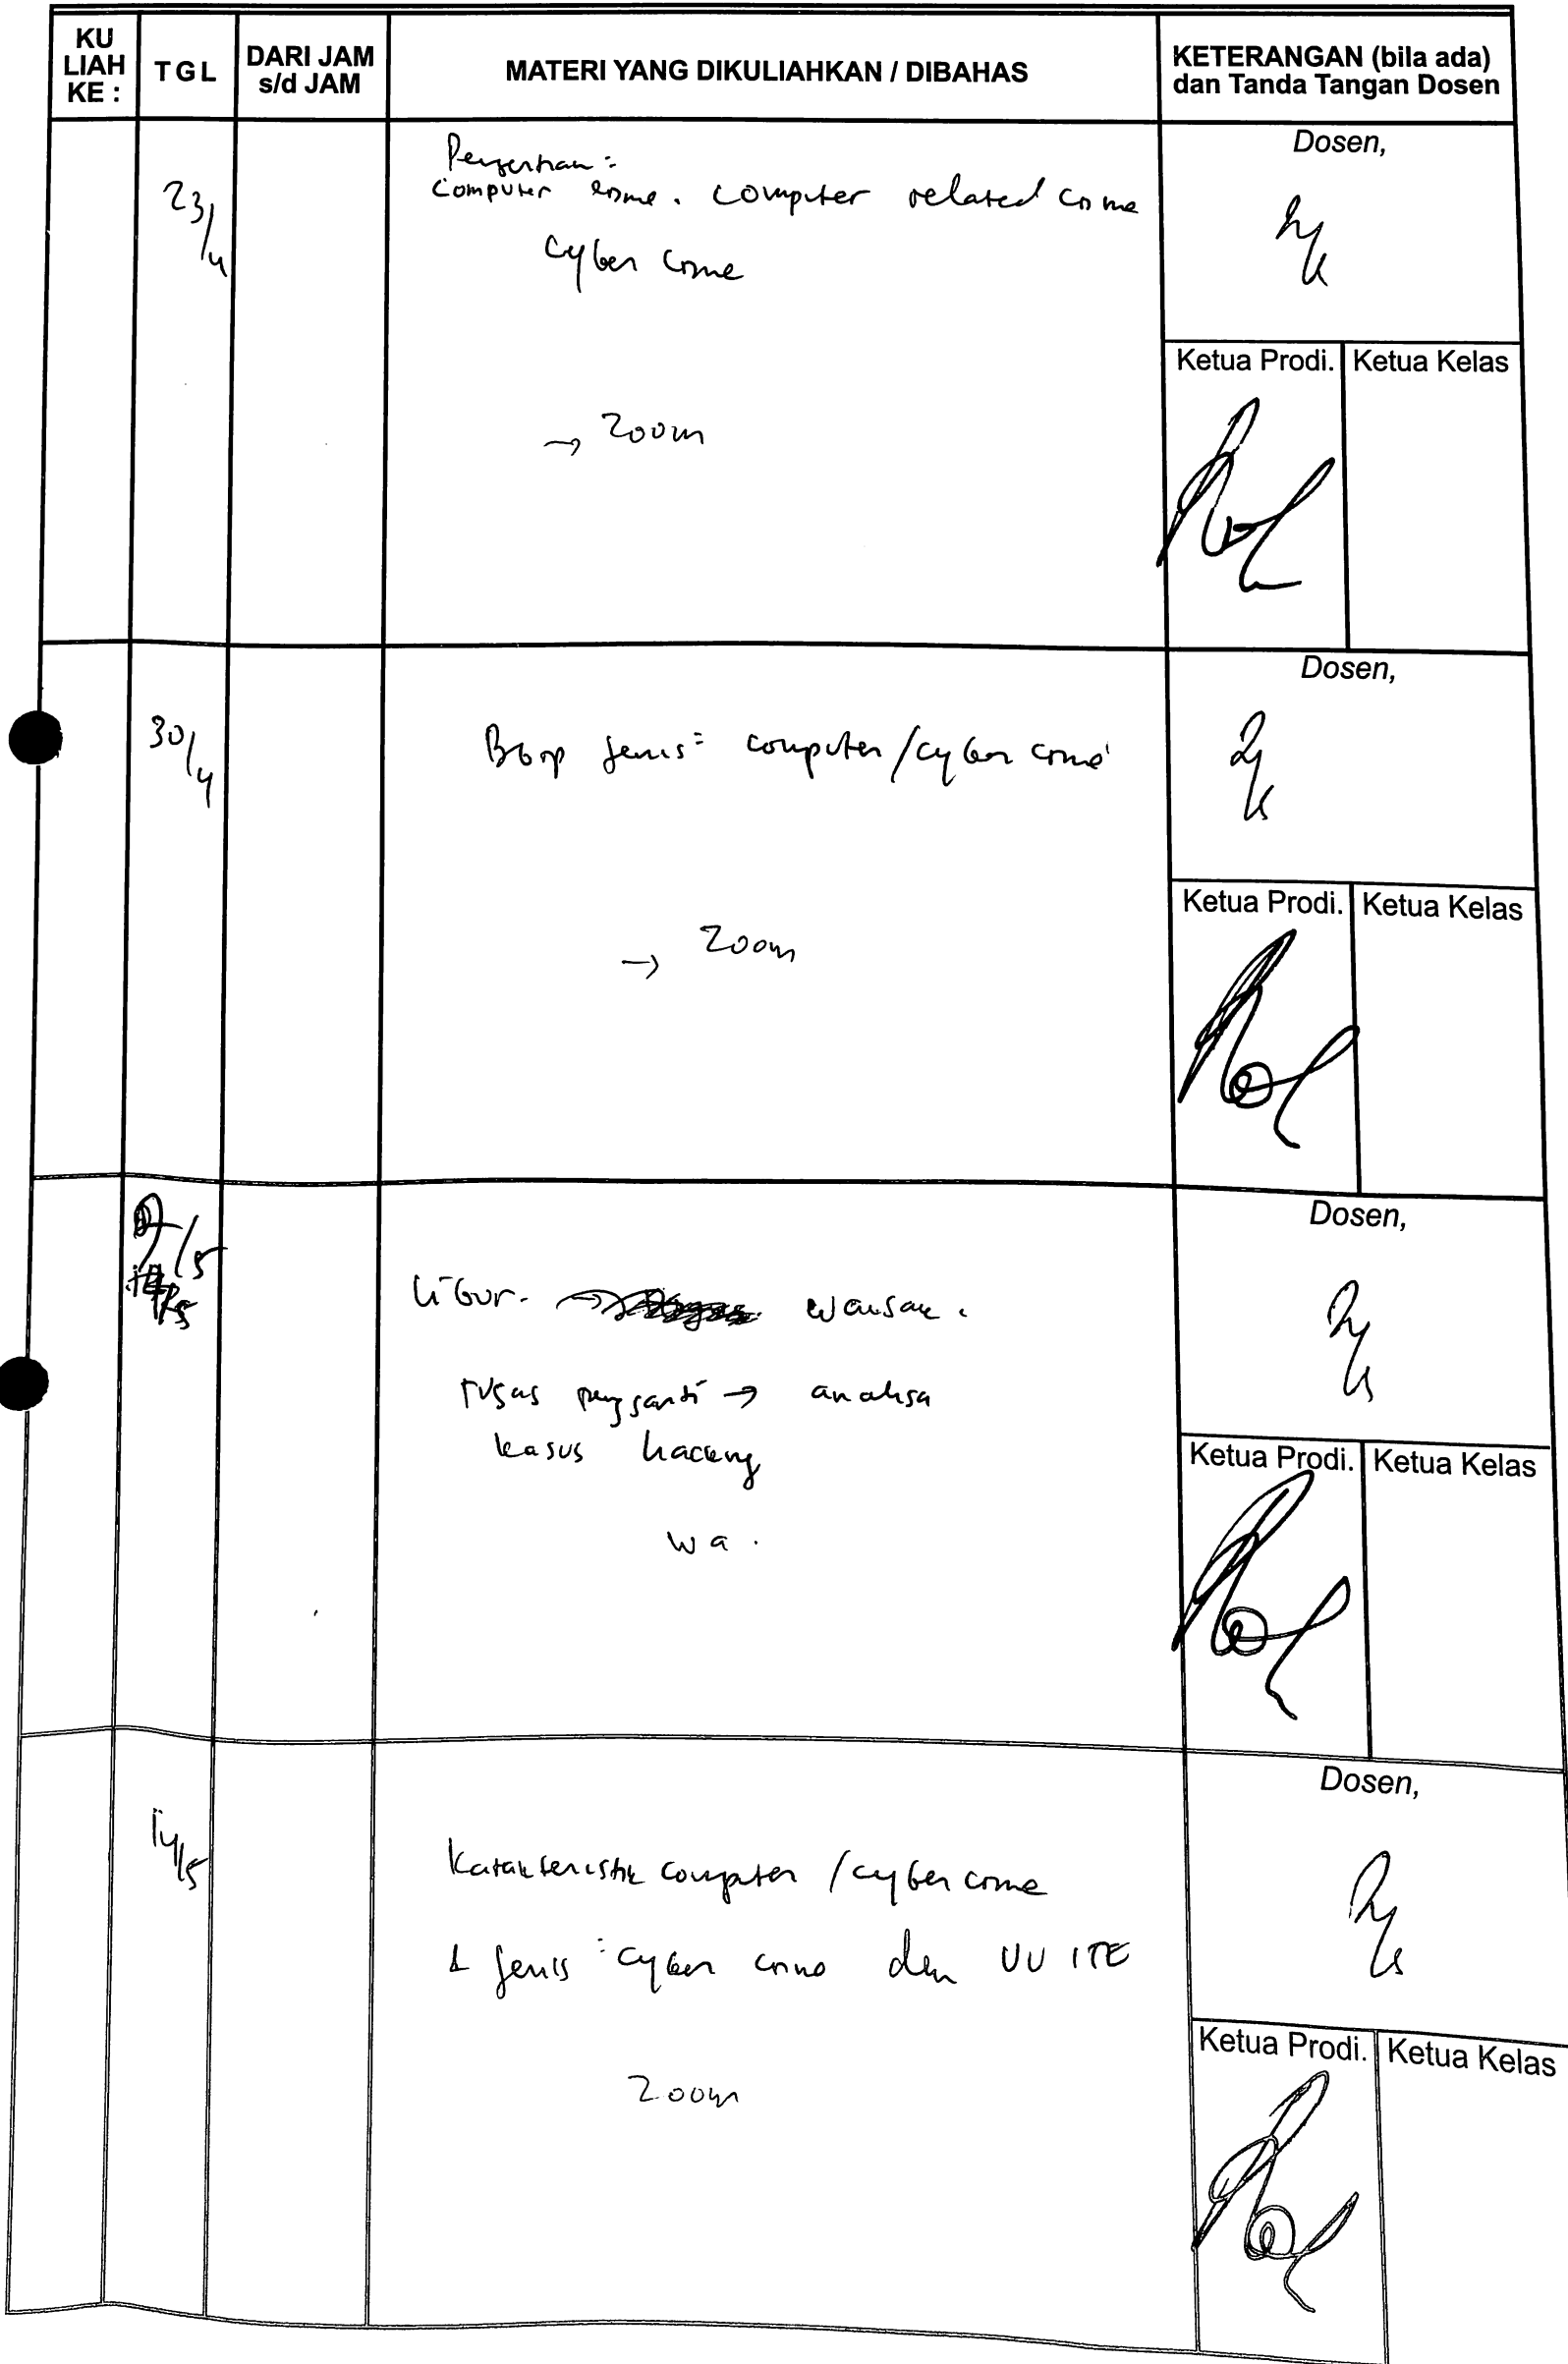 KU LIAH KE :
TGL
DARI JAM s/d JAM
MATERI YANG DIKULIAHKAN / DIBAHAS
KETERANGAN (bila ada) dan Tanda Tangan Dosen
23/4
Pengertian :
Computer crime . computer related crime
Cyber crime
→ Zoom
Dosen,
Ketua Prodi.
Ketua Kelas
30/4
Bbrp jenis² computer/cyber crime
→ Zoom
Dosen,
Ketua Prodi.
Ketua Kelas
/5
Libur. waisak .
Tugas pengganti → analisa
kasus hacking
wa .
Dosen,
Ketua Prodi.
Ketua Kelas
14/5
Karakteristik computer /cyber crime
& jenis² cyber crime dlm UU ITE
Zoom
Dosen,
Ketua Prodi.
Ketua Kelas